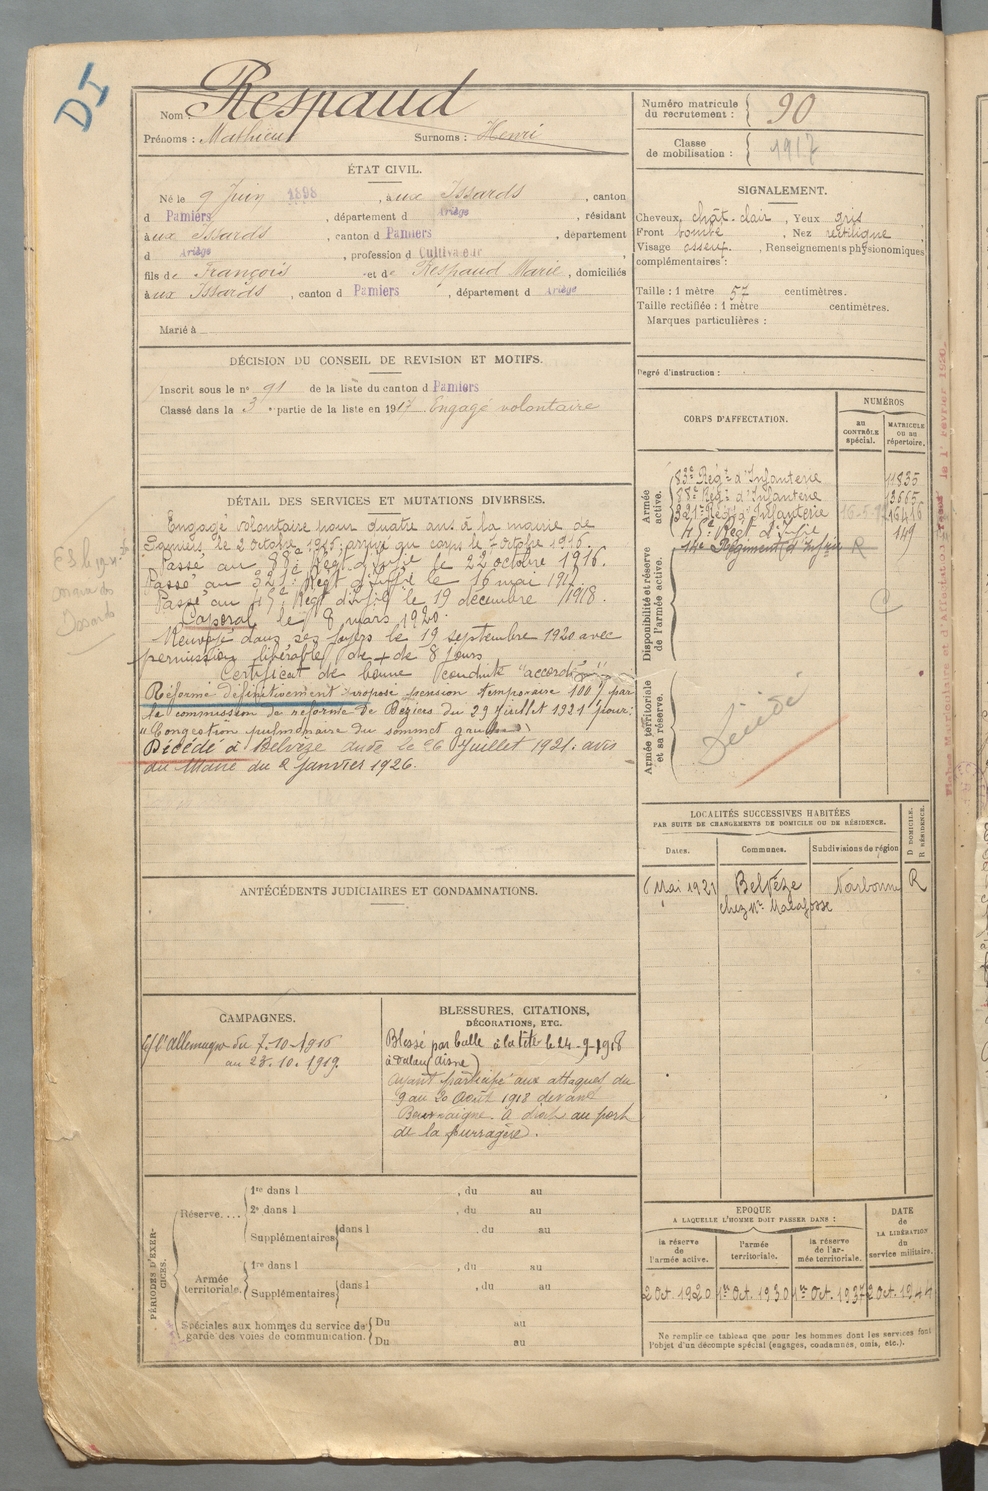 DI
Nom Respaud
Prénoms : Mathieu Surnoms : Henri
ÉTAT CIVIL.
Né le 9 Juin 1898, à aux Issards, canton
d Pamiers, département d Ariège, résidant
à aux Issards, canton d Pamiers, département
d Ariège, profession d Cultivateur,
fils de François et de Respaud Marie, domiciliés
à aux Issards, canton d Pamiers, département d Ariège
Marié à
DÉCISION DU CONSEIL DE REVISION ET MOTIFS.
Inscrit sous le n° 91 de la liste du canton d Pamiers
Classé dans la 3e partie de la liste en 1917 Engagé volontaire
DÉTAIL DES SERVICES ET MUTATIONS DIVERSES.
Engagé volontaire pour quatre ans à la mairie de
Pamiers le 2 octobre 1916, arrivé au corps le 7 octobre 1916.
Passé au 88e Régt d'Inf.ie le 22 octobre 1916.
Passé au 321e Régt d'Inf.ie le 16 mai 191
Passé au 45e Régt d'Inf.ie le 19 décembre 1918.
Caporal le 8 mars 1920.
Renvoyé dans ses foyers le 19 septembre 1920 avec
permission libérable de + de 8 jours
Certificat de bonne conduite "accordé"
Réformé définitivement proposé pension temporaire 100 % par
la commission de réforme de Béziers du 29 Juillet 1921 pour:
"Congestion pulmonaire du sommet gauche"
Décédé à Belvèze Aude le 26 Juillet 1921. avis
du Maire du 2 Janvier 1926.
ANTÉCÉDENTS JUDICIAIRES ET CONDAMNATIONS.
CAMPAGNES.
C/ l'Allemagne du 7-10-1916
au 23.10.1919.
BLESSURES, CITATIONS,
DÉCORATIONS, ETC.
Blessé par balle à la tête le 24-9-1918
à Dalau (Aisne)
Ayant participé aux attaques du
9 au 20 Août 1918 devant
Beuvraigne. A droit au port
de la fourragère.
PÉRIODES D'EXERCICES.
Réserve....
1re dans l , du au
2e dans l , du au
Supplémentaires dans l , du au
Armée territoriale.
1re dans l , du au
Supplémentaires dans l , du au
Spéciales aux hommes du service de garde des voies de communication.
Du au
Du au
Numéro matricule du recrutement : 90
Classe de mobilisation : 1917
SIGNALEMENT.
Cheveux, chât. clair, Yeux gris
Front bombé, Nez rectiligne,
Visage osseux, Renseignements physionomiques
complémentaires :
Taille : 1 mètre 57 centimètres.
Taille rectifiée : 1 mètre centimètres.
Marques particulières :
Degré d'instruction :
CORPS D'AFFECTATION.
NUMÉROS
au CONTRÔLE spécial.
MATRICULE ou au répertoire.
Armée active.
83e Régt d'Infanterie 11835
88e Régt d'Infanterie 13665
321e Régt d'Infanterie 16416
45e Régt d'Inf.ie 149
Disponibilité et réserve de l'armée active.
14e Régiment d'Infan R
Armée territoriale et sa réserve.
LOCALITÉS SUCCESSIVES HABITÉES
PAR SUITE DE CHANGEMENTS DE DOMICILE OU DE RÉSIDENCE.
Dates. Communes. Subdivisions de région D DOMICILE. R RÉSIDENCE.
6 Mai 1921 Belvèze Narbonne R
chez Mr Malafosse
EPOQUE
A LAQUELLE L'HOMME DOIT PASSER DANS :
la réserve de l'armée active.
l'armée territoriale.
la réserve de l'armée territoriale.
DATE de LA LIBÉRATION du service militaire.
2 Oct. 1920 1er Oct. 1930 1er Oct. 1937 2 Oct. 1944
Ne remplir ce tableau que pour les hommes dont les services font
l'objet d'un décompte spécial (engagés, condamnés, omis, etc.).